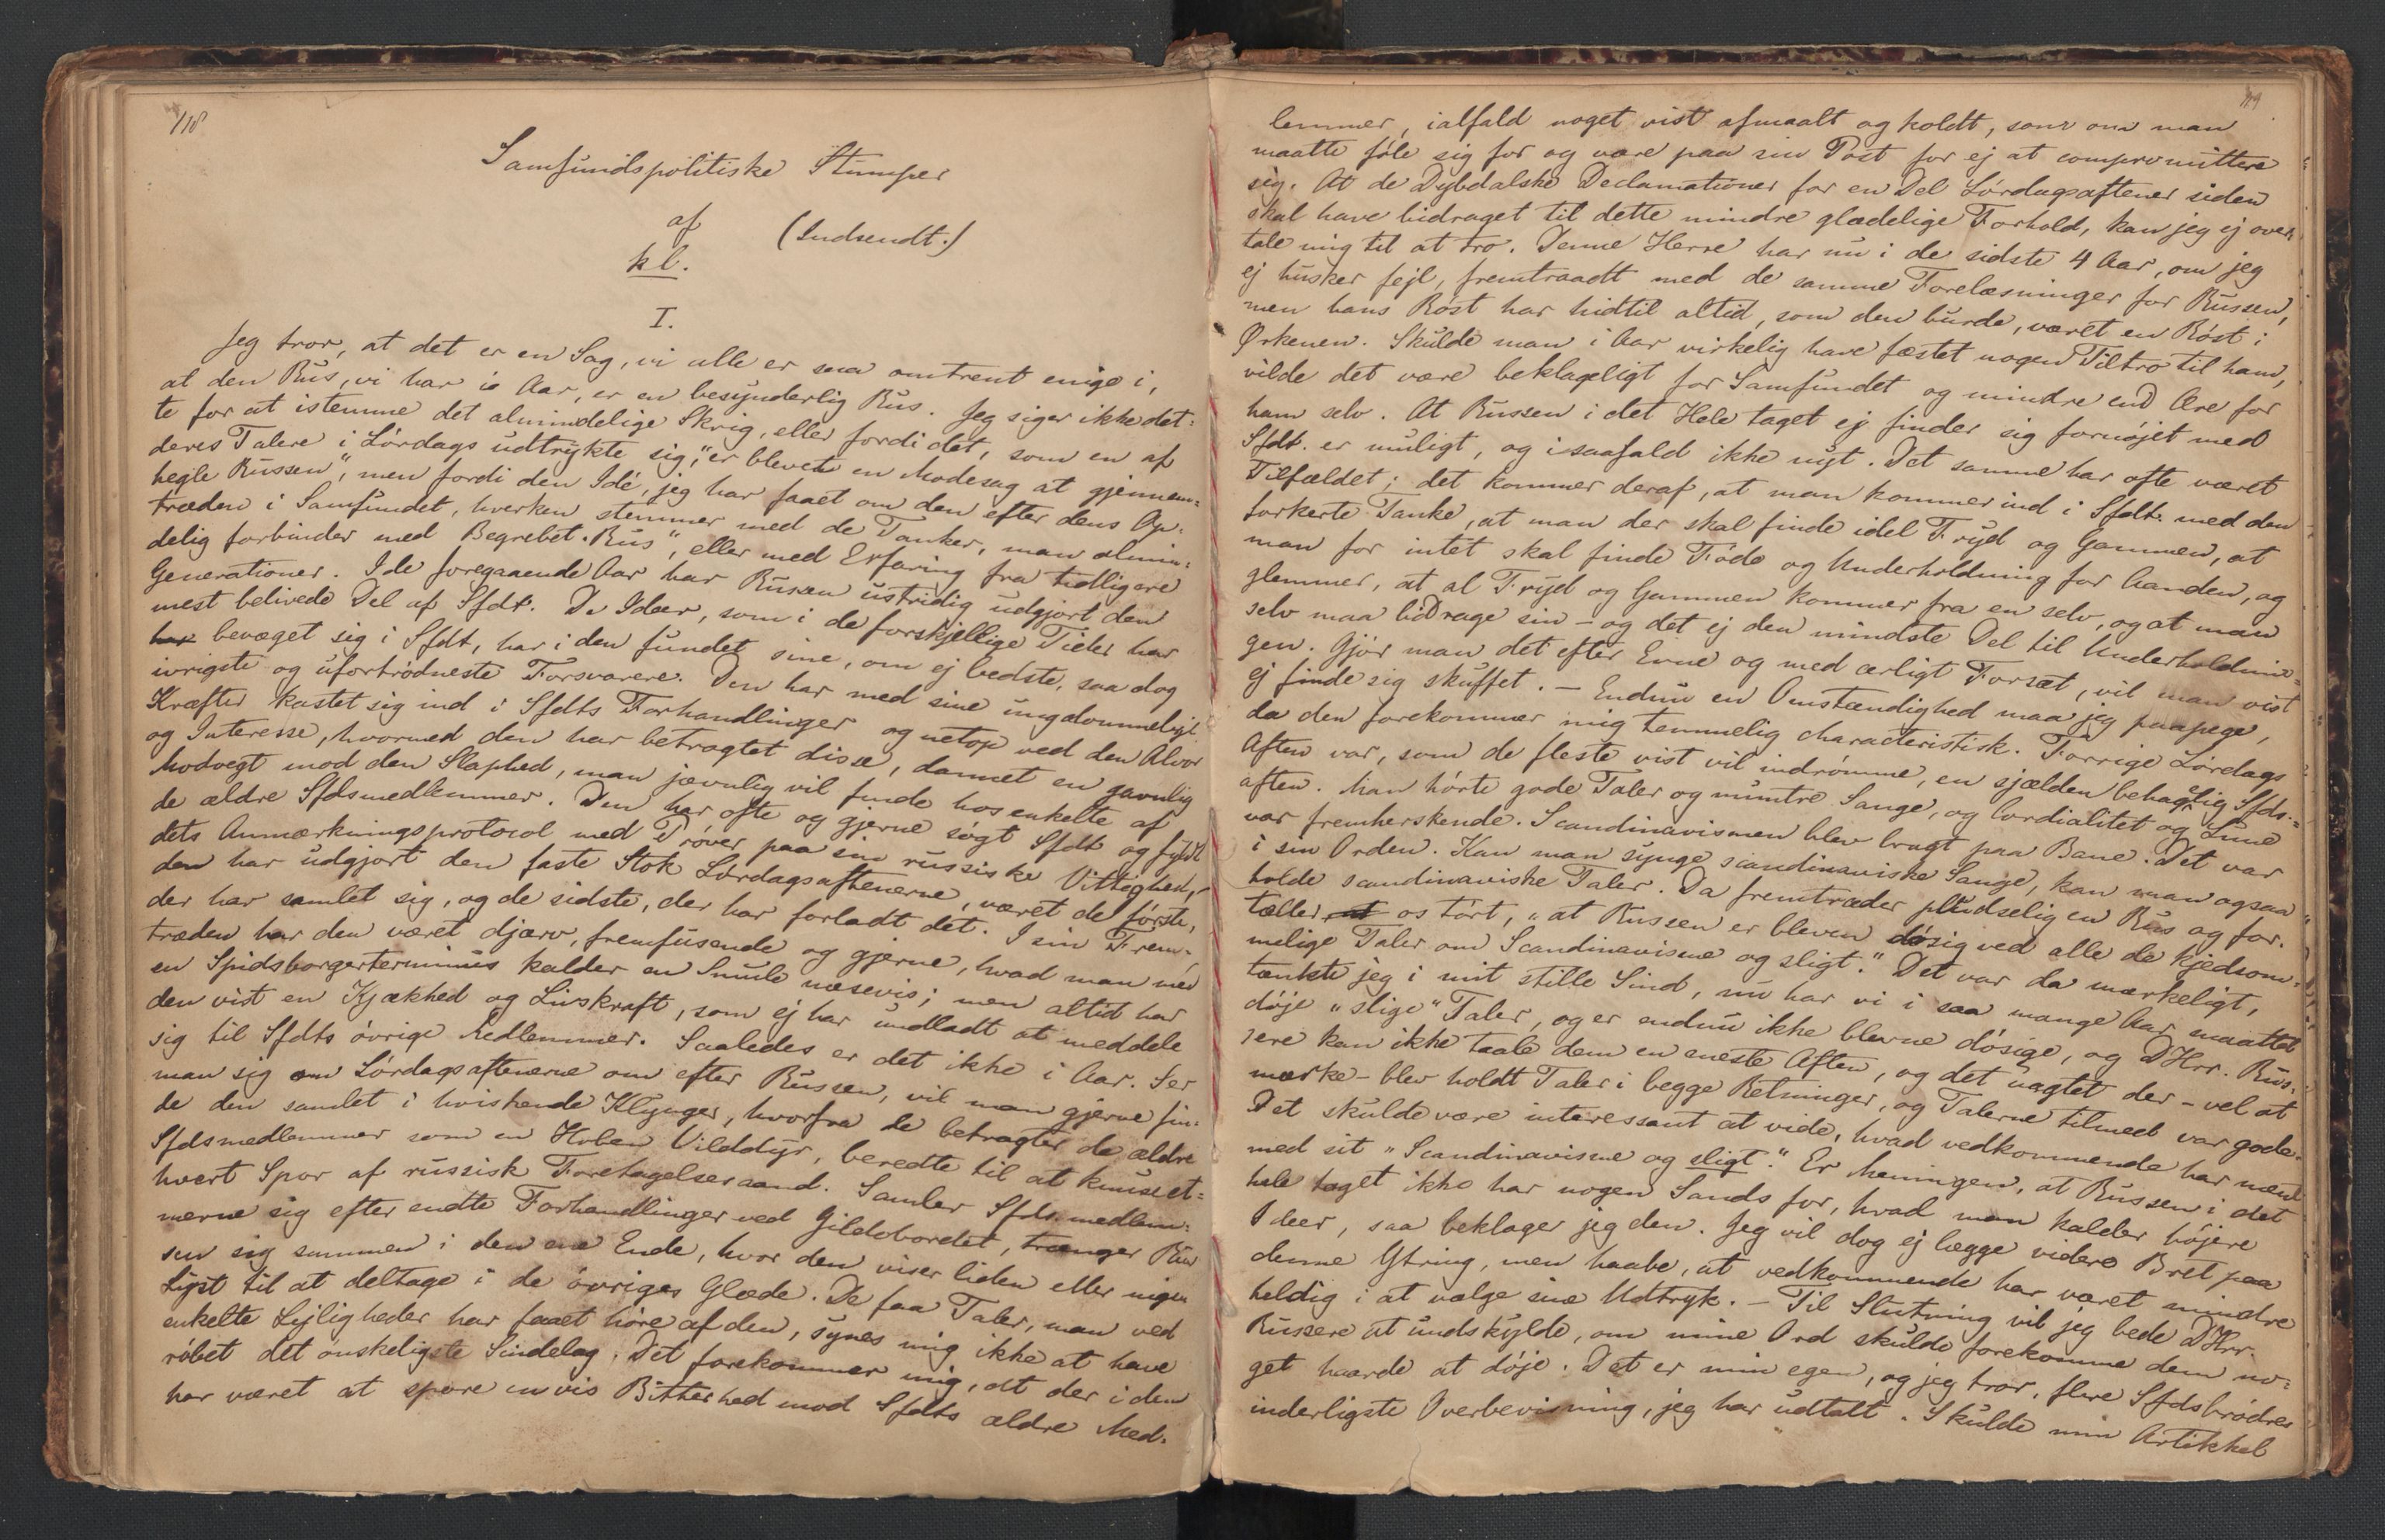 118
Samfundspolitiske Stumper
af (Indsendt.)
kl.
I.
Jeg tror, at det er en Sag, vi alle er saa omtrent enige i,
at den Rus, vi har i Aar, er en besynderlig Rus. Jeg siger ikke det-
te for at istemme det almindelige Skrig, eller fordi det, som en af
deres Talere i Lördags udtrykte sig, "er blevet en Modesag at gjennem-
hegle Russen", men fordi den Idé, jeg har faaet om den efter dens Op-
træden i Samfundet, hverken stemmer med de Tanker, man almin-
delig forbinder med Begrebet "Rus", eller med Erfaring fra tidligere
Generationer. I de foregaaende Aar har Russen ustridig udgjort den
mest belivede Del af Sfdt. De Ideer, som i de forskjellige Tider har
har bevæget sig i Sfdt, har i den fundet sine, om ej bedste, saa dog
ivrigste og ufortrödneste Forsvarere. Den har med sine ungdommelige
Kræfter kastet sig ind i Sfdts Forhandlinger og netop ved den Alvor
og Interesse, hvormed den har betragtet disse, dannet en gavnlig
Modvegt mod den Slaphed, man jævnlig vil finde hos enkelte af
de ældre Sfdsmedlemmer. Den har ofte og gjerne sögt Sfdt og fyldt
dets Anmærkningsprotocol med Pröver paa sin russiske Vittighed,
den har udgjort den faste Stok Lördagsaftenerne, været de förste,
der har samlet sig, og de sidste, der har forladt det. I sin Frem-
træden har den været djærv, fremfusende og gjerne, hvad man med
en Spidsborgerterminus kalder en Smule næsevis; men altid har
den vist en Kjækhed og Livskraft, som ej har undladt at meddele
sig til Sfdts övrige Medlemmer. Saaledes er det ikke i Aar. Ser
man sig om Lördagsaftenerne om efter Russen, vil man gjerne fin-
de den samlet i hviskende Klynger, hvorfra de betragter de ældre
Sfdsmedlemmer som en Hoben Vilddyr, beredte til at knuse et-
hvert Spor af russisk Foretagelsesaand. Samler Sfdsmedlem-
merne sig efter endte Forhandlinger ved Gildebordet, trænger Rus-
sen sig sammen i den ene Ende, hvor den viser liden eller ingen
Lyst til at deltage i de övriges Glæde. De faa Taler, man ved
enkelte Lejligheder har faaet höre af den, synes mig ikke at have
röbet det önskeligste Sindelag. Det forekommer mig, at der i den
har været at spore en vis Bitterhed mod Sfdts ældre Med-
119
lemmer, ialfald noget vist afmaalt og koldt, som om man
maatte föle sig for og være paa sin Post for ej at compromittere
sig. At de Dybdalske Declamationer for en Del Lördagsaftener siden
skal have bidraget til dette mindre glædelige Forhold, kan jeg ej over-
tale mig til at tro. Denne Herre har nu i de sidste 4 Aar, om jeg
ej husker fejl, fremtraadt med de samme Forelæsninger for Russen,
men hans Röst har hidtil altid, som den burde, været en Röst i
Ørkenen. Skulde man i Aar virkelig have fæstet nogen Tiltro til ham,
vilde det være beklageligt for Samfundet og mindre end Ære for
ham selv. At Russen i det Hele taget ej finder sig fornöjet med
Sfdt. er muligt, og i saafald ikke nyt. Det samme har ofte været
Tilfældet; det kommer deraf, at man kommer ind i Sfdt. med den
forkerte Tanke, at man der skal finde idel Fryd og Gammen, at
man for intet skal finde Föde og Underholdning for Aanden, og
glemmer, at al Fryd og Gammen kommer fra en selv, og at man
selv maa bidrage sin - og det ej den mindste Del til Underholdnin-
gen. Gjör man det efter Evne og med ærligt Forsæt, vil man vist
ej finde sig skuffet. - Endnu en Omstændighed maa jeg paapege,
da den forekommer mig temmelig characteristisk. Forrige Lördags
Aften var, som de fleste vist vil indrömme, en sjælden behagelig Sfds-
aften. Man hörte gode Taler og muntre Sange, og Cordialitet og Lune
var fremherskende. Scandinavismen blev bragt paa Bane. Det var
i sin Orden. Kan man synge scandinaviske Sange, kan man ogsaa
holde scandinaviske Taler. Da fremtræder pludselig en Rus og for-
tæller os tört, "at Russen er bleven dösig ved alle de kjedsom-
melige Taler om Scandinavisme og sligt." Det var da mærkeligt,
tænkte jeg i mit stille Sind, nu har vi i saa mange Aar maattet
döje "slige" Taler, og er endnu ikke blevne dösige, og DHrr. Rus-
sere kan ikke taale dem en eneste Aften, og det uagtet der - vel at
mærke - blev holdt Taler i begge Retninger, og Talerne tilmed var gode.
Det skulde være interessant at vide, hvad vedkommende har ment
med sit "Scandinavisme og sligt." Er Meningen, at Russen i det
hele taget ikke har nogen Sands for, hvad man kalder höjere
Ideer, saa beklager jeg den. Jeg vil dog ej lægge videre Bret paa
denne Ytring, men haabe, at vedkommende har været mindre
heldig i at vælge sine Udtryk. - Til Slutning vil jeg bede DHrr.
Russere at undskylde, om mine Ord skulde forekomme dem no-
get haarde at döje. Det er min egen, og jeg tror, flere Sfdsbrödres
inderligste Overbevisning, jeg har udtalt. Skulde min Artikkel